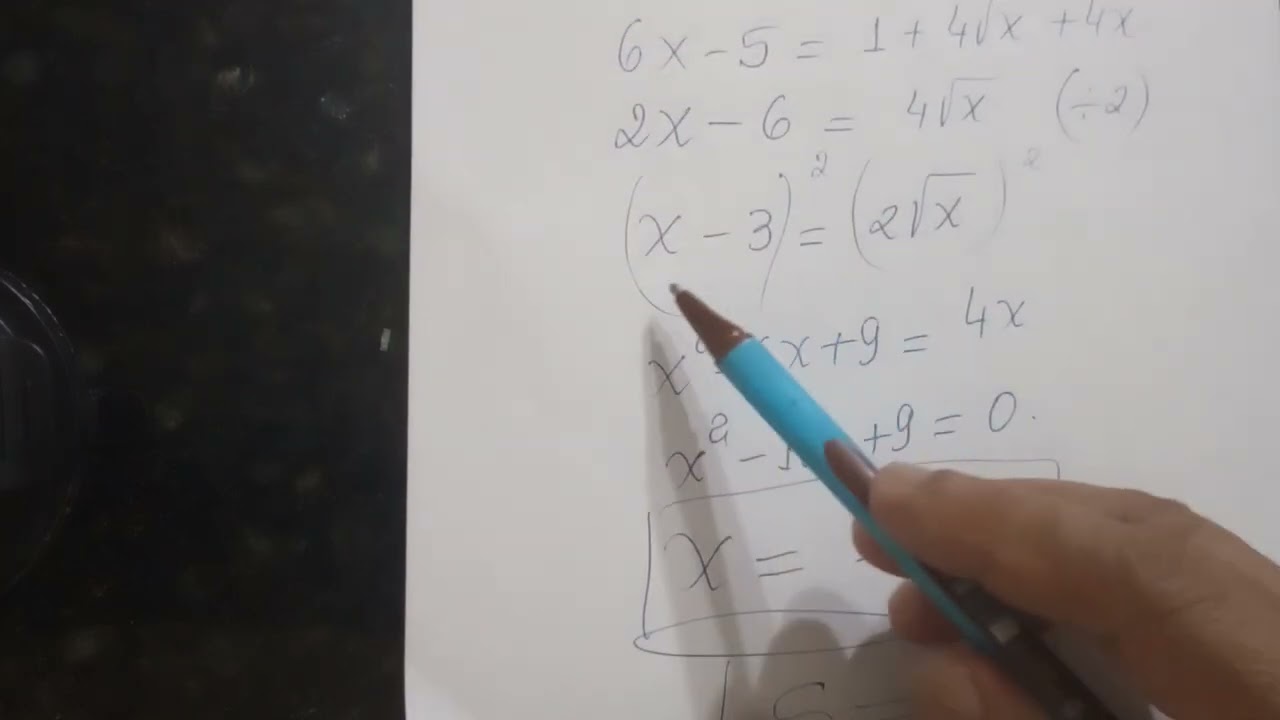 6x - 5 = 1 + 4√x + 4x
2x - 6 = 4√x (÷2)
(x - 3)² = (2√x)²
x x + 9 = 4x
x² - 1 + 9 = 0.
x =
S =